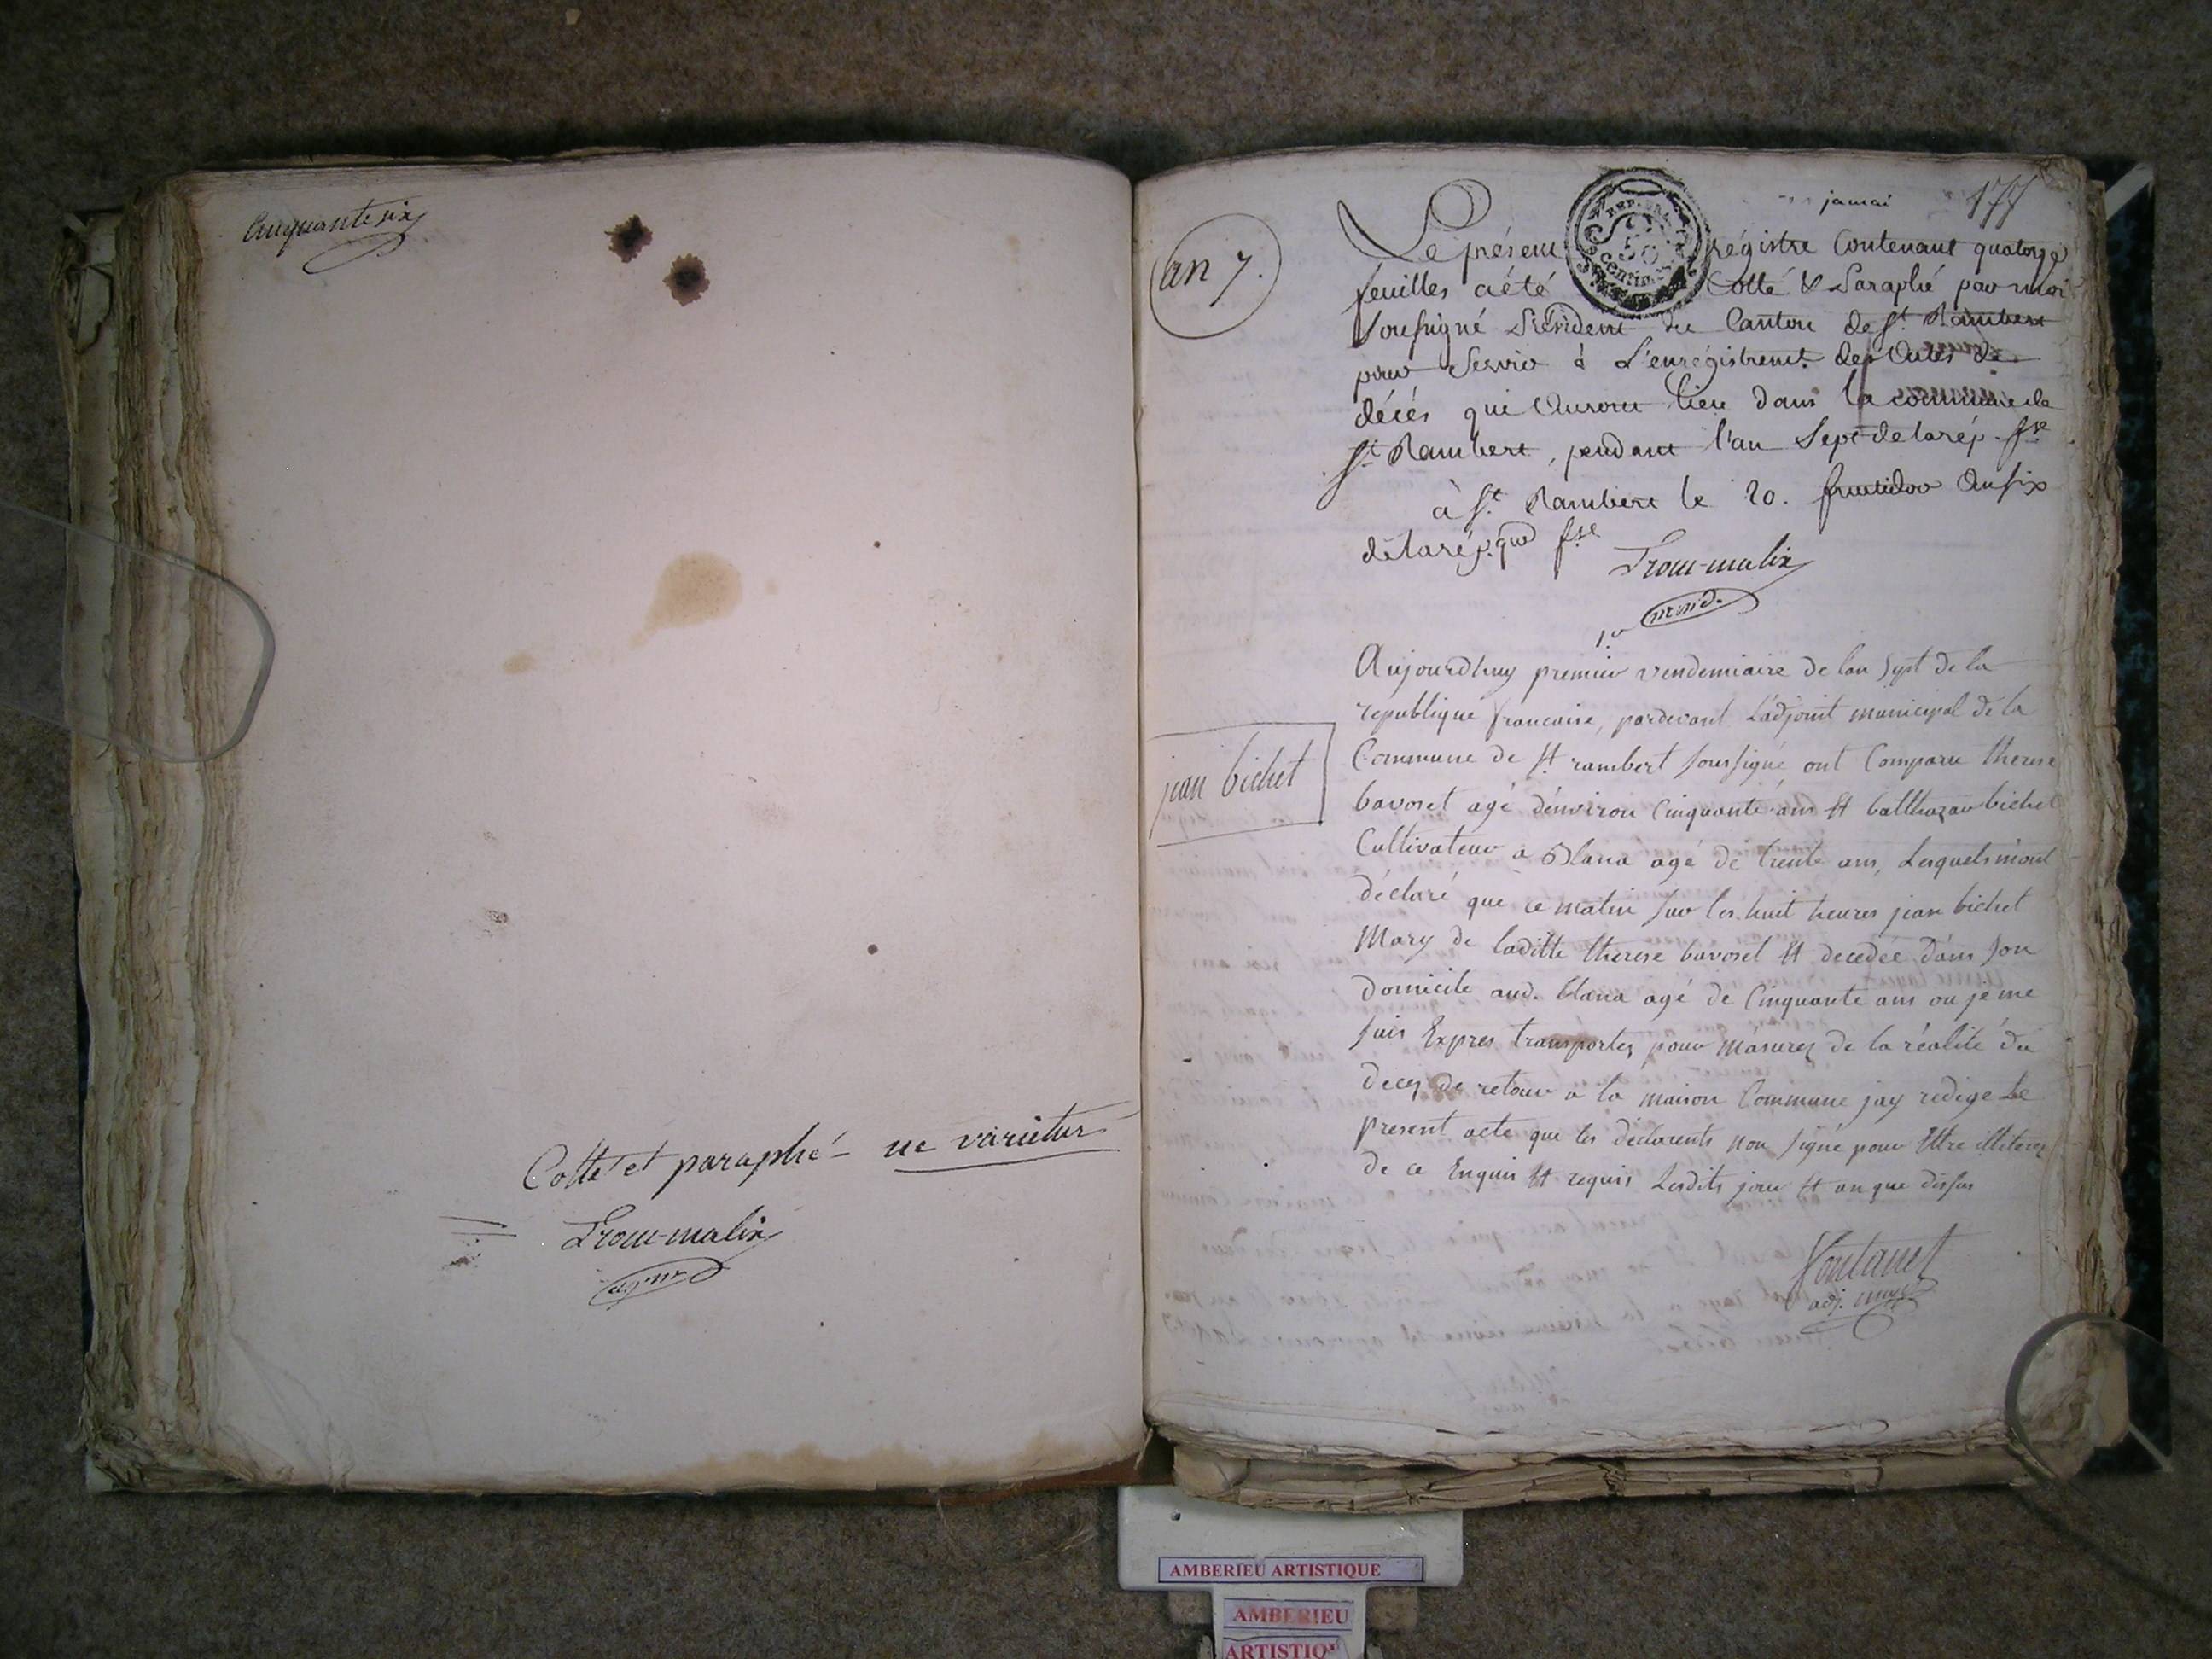 Cinquante six
Cotté et paraphé ne varietur
Trocu-malix
jamai
177
an 7.
REP. FRA.
50
CENTIM.
Le présent régistre Contenant quatorze
feuilles a été Cotté & Paraphé par moi
soussigné Président du Canton de St. Rambert
pour Servir à L'enregistremt. des Actes de
décés qui Auront lieu dans la commune de
St. Rambert, pendant l'an Sept de la rép. fse
à St. Rambert le 20. fructidor An six
de la rép.que fse
Trocu-malix
présid.
1er
Aujourdhuy premier vendemiaire de lan sept de la
republique francaise, pardevant Ladjoint municipal de la
Commune de St. rambert soussigné ont Comparu therese
bavoset agé d'environ Cinquante ans Et balthazar bichet
Cultivateur a Blana agé de trente ans, Lesquels m'ont
déclaré que ce matin sur les huit heures jean bichet
Mary de laditte therese bavoset Et decedée dans son
domicile aud. blana agé de Cinquante ans ou je me
suis Expres transportez pour m'asurez de la réalité du
decez de retour a la maison Commune jay redige Le
present acte que les declarents non signé pour Ettre illiterez
de ce Enquis Et requis Lesdits jour Et an que dessus
jean bichet
Fontanet
adj. mupl
AMBERIEU ARTISTIQUE
AMBERIEU
ARTISTIQU